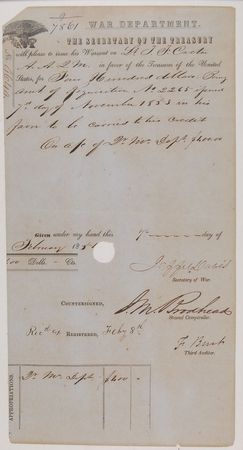 7861
WAR DEPARTMENT.
THE SECRETARY OF THE TREASURY
will please to issue his Warrant on Lt. J. F. Castor
A. A. Q. M. in favor of the Treasurer of the United
States, for Four Hundred dollars. Being
amt of requisition No 2265 issued
7th day of November 1853 in his
favor to be carried to his credit
On a/c of Qr. Mr. Dept. $400.00
Given under my hand this 7 day of
February 185
400 Dolls. Cts.
Jeff. Davis
Secretary of War.
COUNTERSIGNED,
J. M. Brodhead
Second Comptroller.
REGISTERED, Feby 8th
F. Burt
Third Auditor.
APPROPRIATIONS
Qr. Mr. Dept. $400